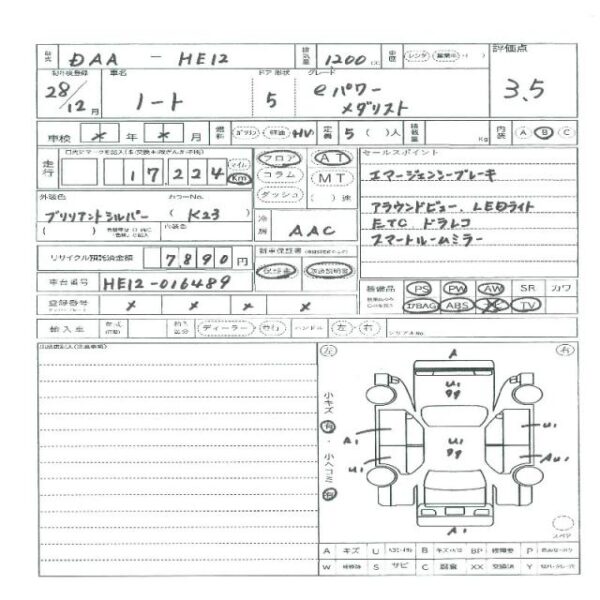 型式 DAA - HE12 排気量 1,200 cc 車歴 レンタ 評価点
初度登録 車名 ドア 形状 グレード
28/12月 ノート 5 eパワー メダリスト 3.5
車検 × 年 × 月 燃料 ガソリン 軽油 HV 定員 5 ( )人 積載量 Kg 内装 A B C
走行 17,224 マイル Km フロア AT セールスポイント
コラム MT エマージェンシーブレーキ
ダッシュ ( )速
外装色 カラーNo. アラウンドビュー、LEDライト
ブリリアントシルバー ( K23 ) 冷房 AAC ETC ドラレコ
( ) 内装色 スマートルームミラー
リサイクル預託済金額 7,890 円 新車保証書
保証書 取扱説明書
車台番号 HE12-016489 装備品 PS PW AW SR カワ
登録番号 × × × × エアBAG ABS TV
輸入車 ディーラー 並行 ハンドル 左 右 シリアルNo.
左 右
A
U1
小キズ 有 A1 U1 U1
小ヘコミ U1 AU1
A1
スペア
A キズ U B BP P
W S サビ C 腐食 XX 交換済 Y